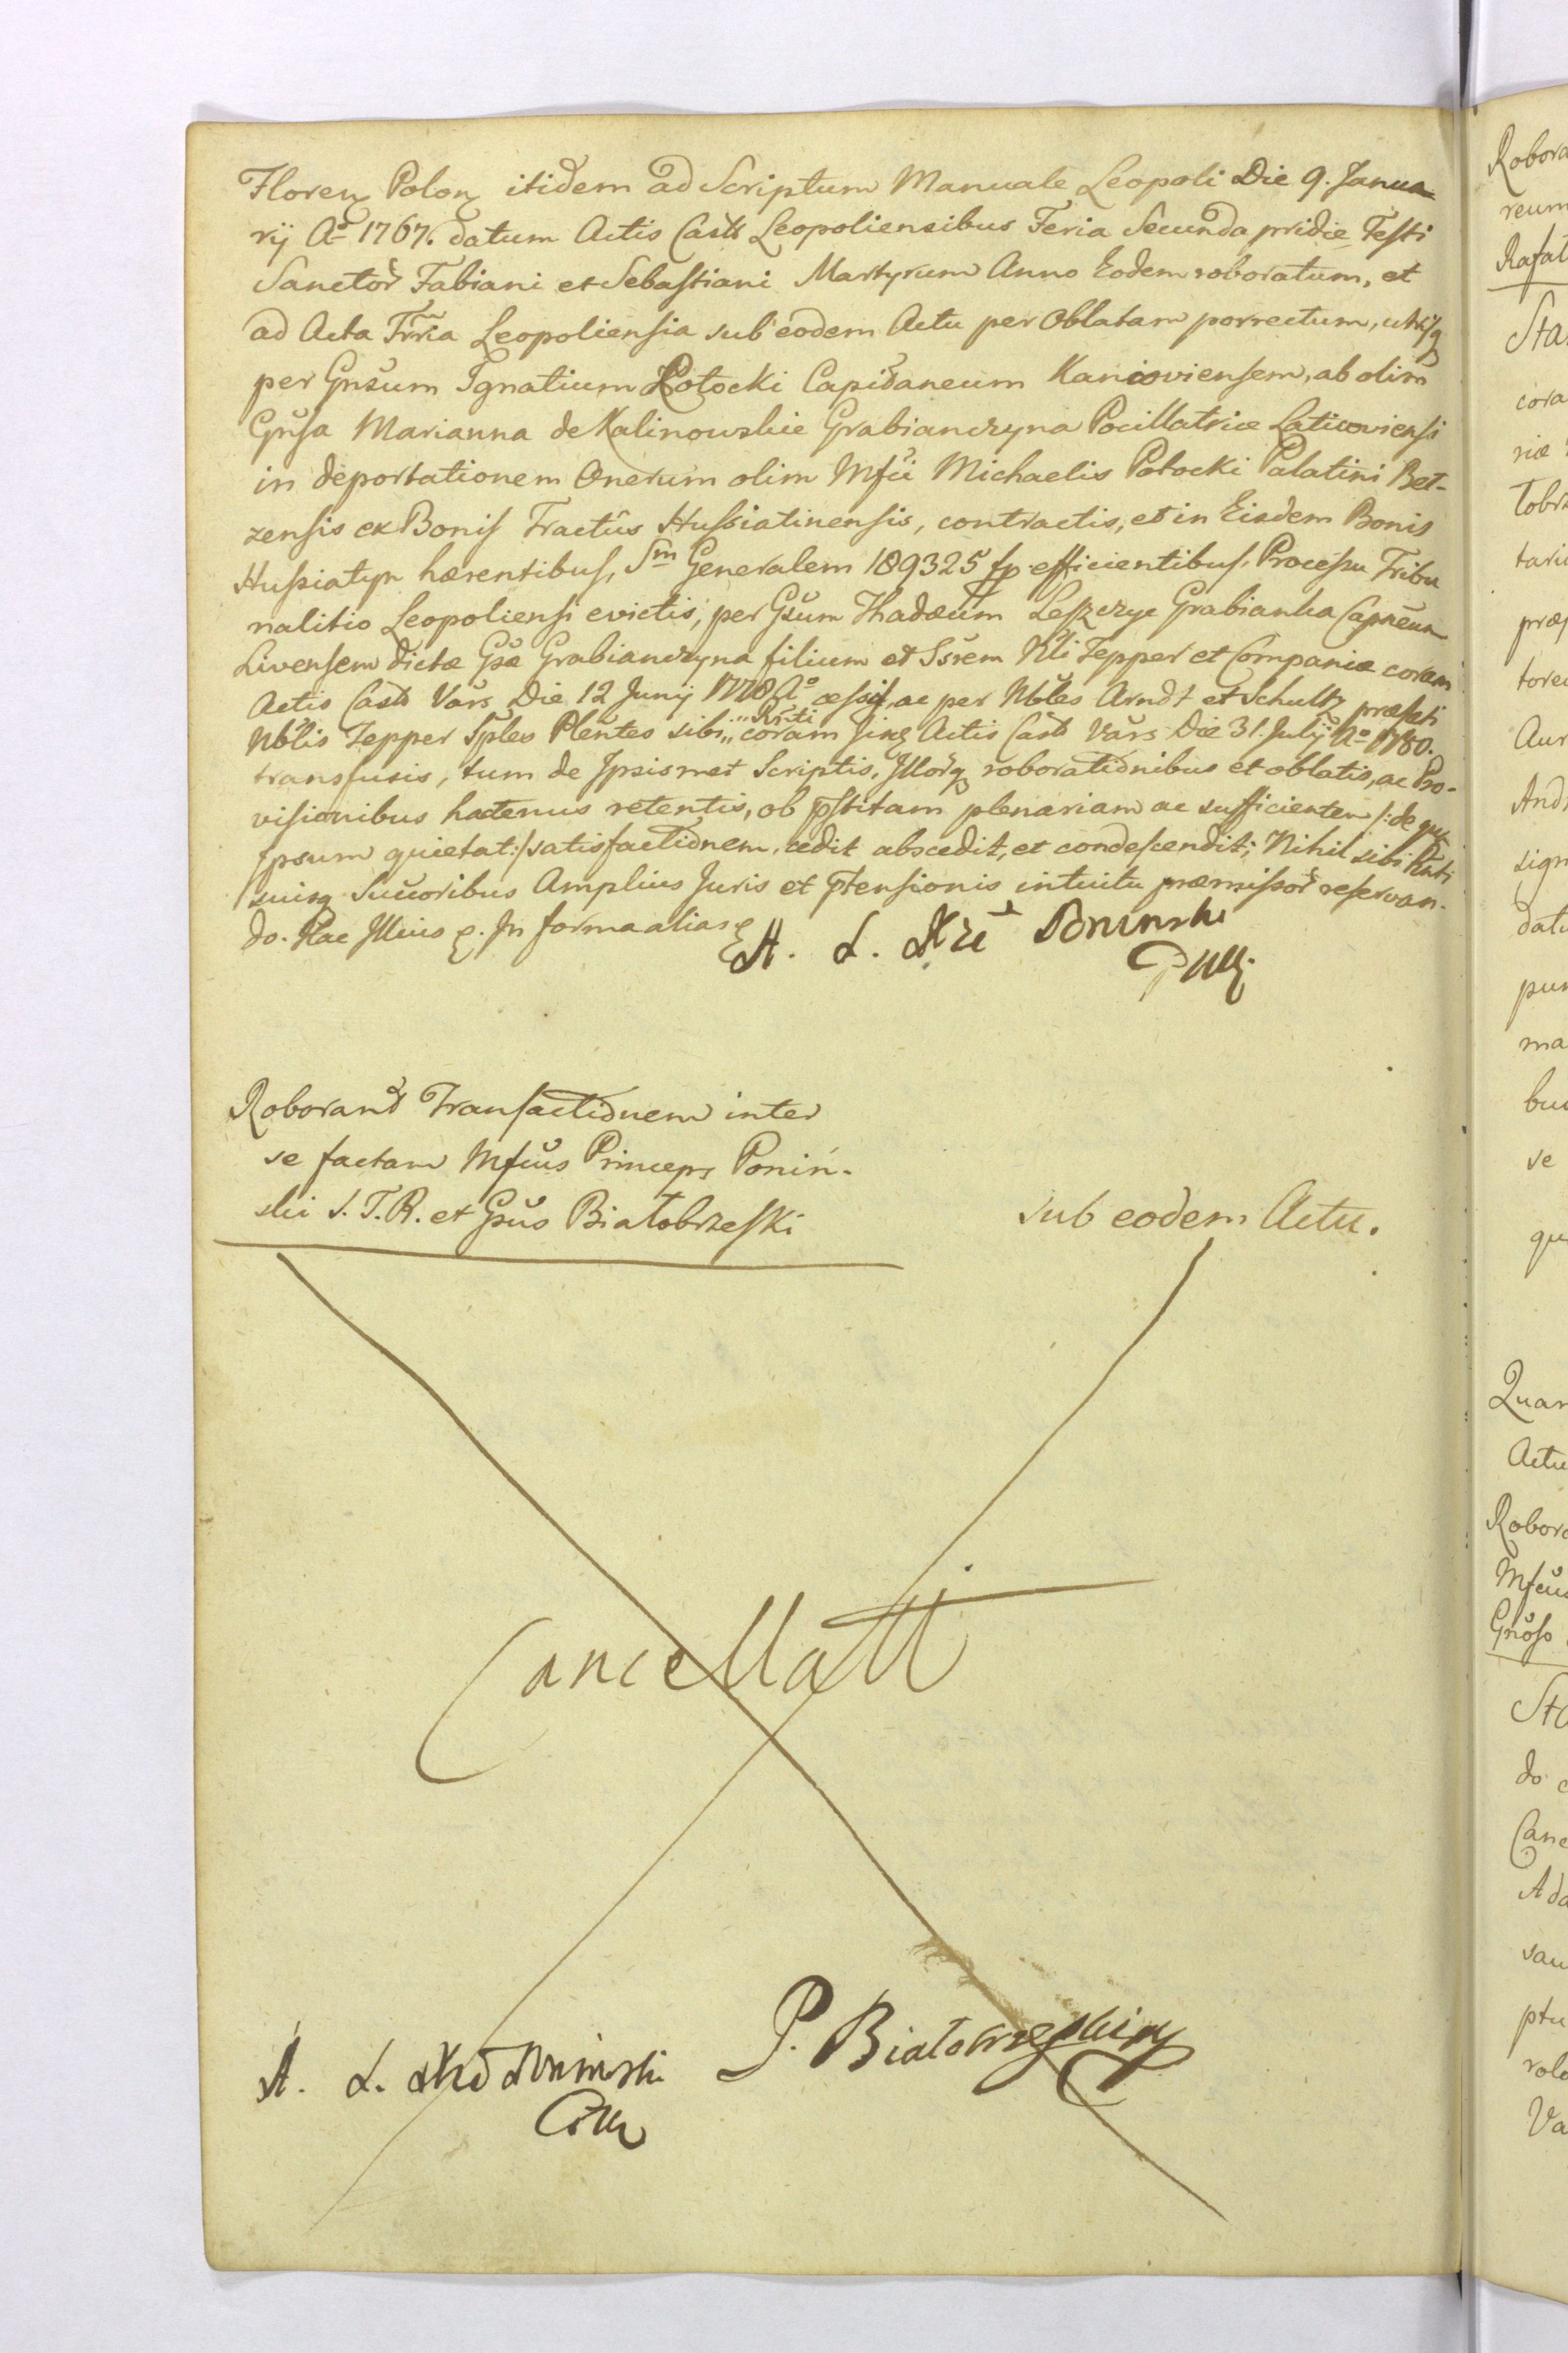 Floreŋ Poloŋ itidem ad Scriptum Manuale Leopoli Die 9. Janua
rij Aº 1767. datum Actis Casts Leopoliensibus Feria Secunda pridie Festi
Sanctor Fabiani et Sebastiani Martyrum Anno Eodem roboratum, et
ad Acta Trria Leopoliensia sub eodem Actu per Oblatam porrectum, utrisq
per Gnsum Ignatium Potocki Capitaneum Kanioviensem, ab olim
Gnsa Marianna de Kalinowskie Grabianczyna Pocillatrice Laticoviensi
in deportationem Onerum olim Mfci Michaelis Potocki Palatini Bet-
zensis ex Bonis Tractûs Hussiatinensis, contractis, et in Eisdem Bonis
Hussiatyn hærentibus, Sm Generalem 189325 fp. efficientibus, Processu Tribu
nalitio Leopoliensi evictis, per Gsum Thadæum Leszczyc Grabianka Capneum
Livensem dictæ Gsæ Grabianczyna filium et Ssrem Nli Tepper et Companiæ coram
Actis Casts Vars Die 12 Junij 1778 Aº cessis, ac per Nbles Arndt et Schultz præfati
Nblis Tepper Sples Plentes sibi Rnti coram Jisq Actis Casts Vars Die 31. Julij Aº 1780.
transfusis, tum de Ipsismet Scriptis, Illorq roborationibus et oblatis, ac Pro-
visionibus hactenus retentis, ob pstitam plenariam ac sufficientem /: de qua
Ipsum quietat :/ satisfactionem, cedit abscedit, et condescendit; Nihil sibi Rnti
suisq Succoribus Amplius Juris et ptensionis intuitu præmissor reservan-
do. Hac Illius p. In forma alias
A. L. Xże Poninski
Roborant Transactionem inter
se factam Mfcus Princeps Poniń-
ski S. T. R. et Gsus Białobrzeski
Sub eodem Actu.
Cancellatt
A. L. Xże Poninski
P. Białobrzeski